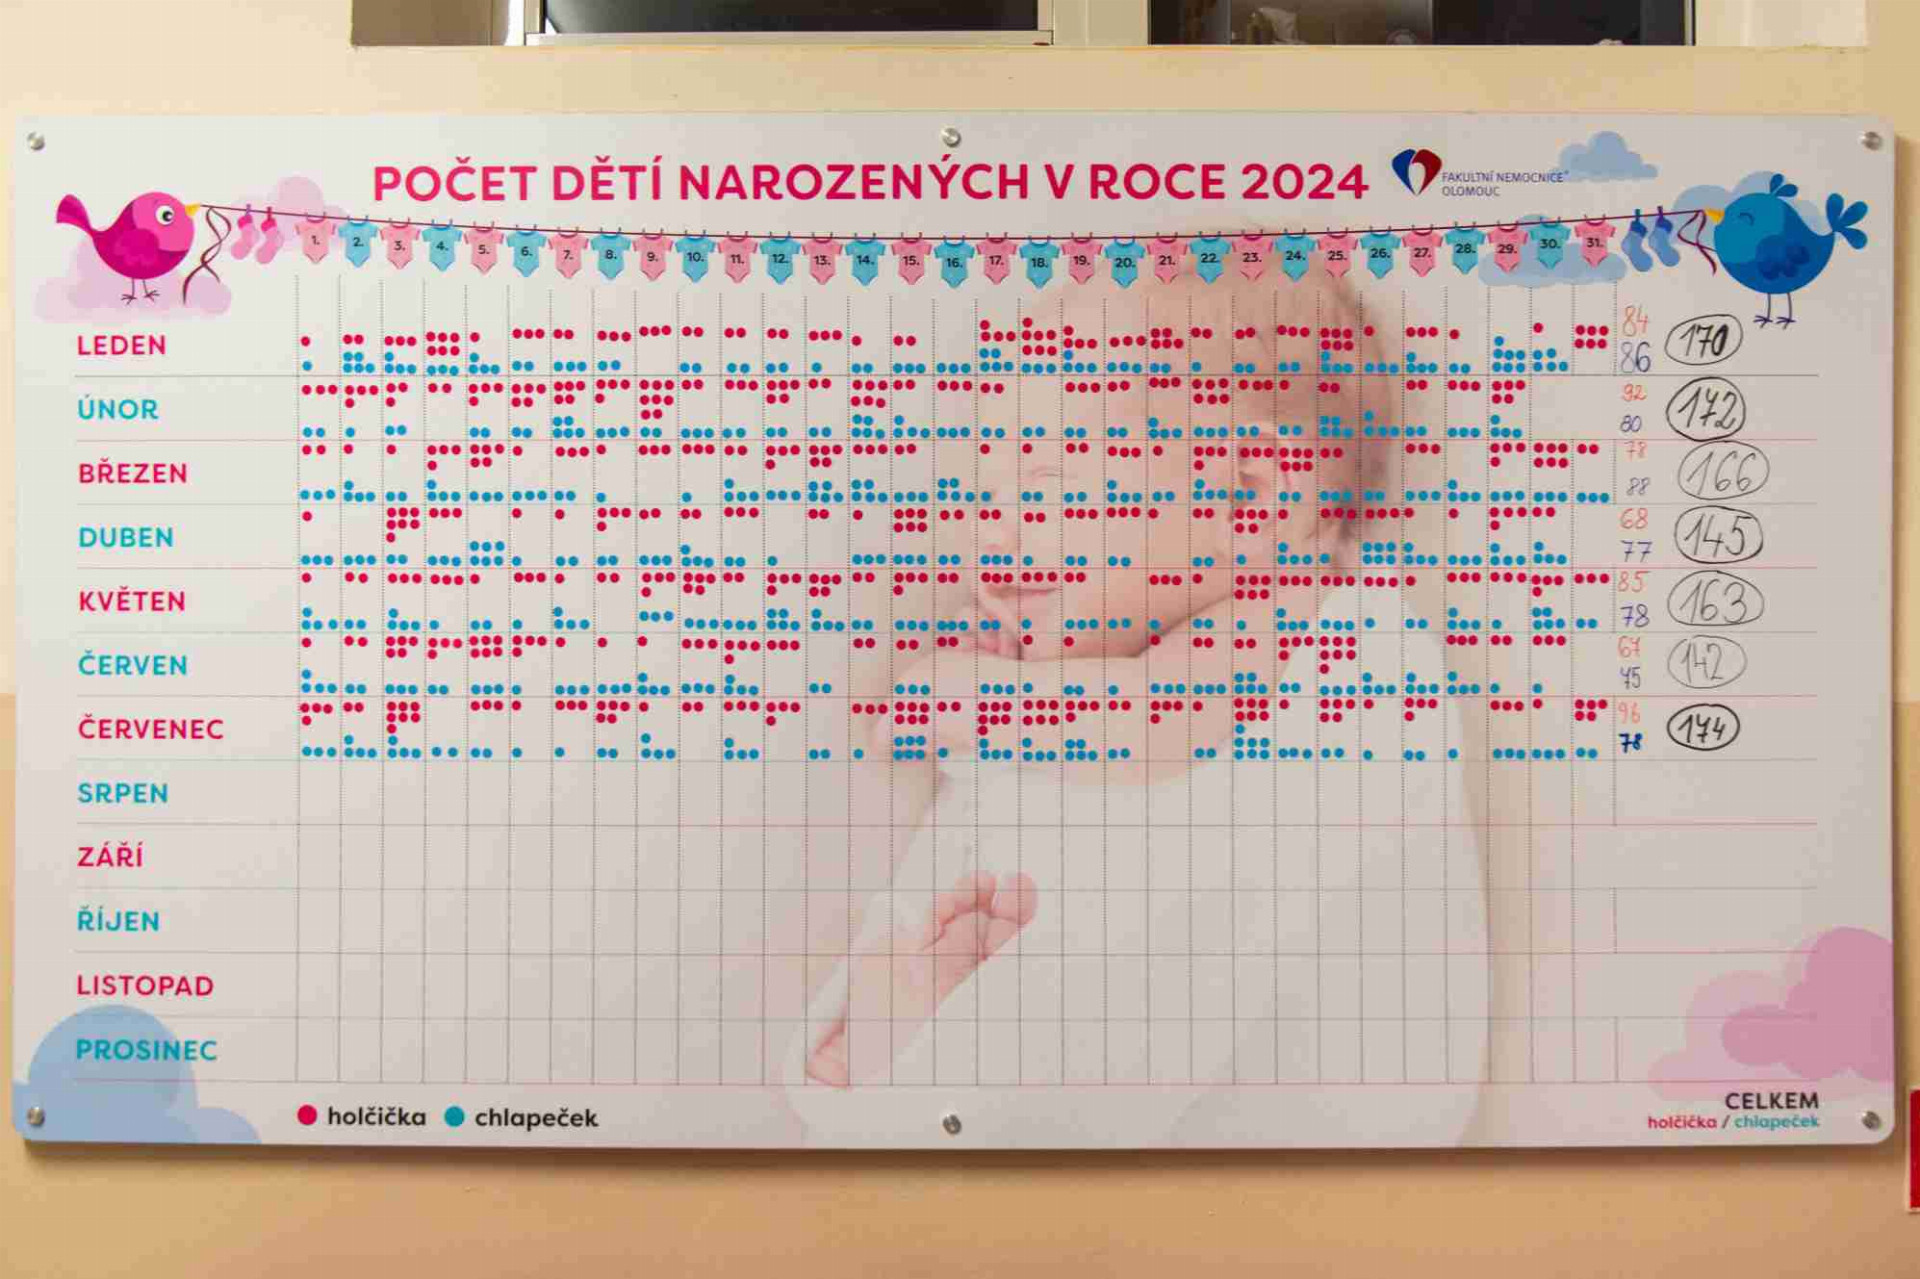 POČET DĚTÍ NAROZENÝCH V ROCE 2024
FAKULTNÍ NEMOCNICE
OLOMOUC
1. 2. 3. 4. 5. 6. 7. 8. 9. 10. 11. 12. 13. 14. 15. 16. 17. 18. 19. 20. 21. 22. 23. 24. 25. 26. 27. 28. 29. 30. 31.
84
LEDEN 170
86
92
ÚNOR 172
80
78
BŘEZEN 166
88
68
DUBEN 145
77
85
KVĚTEN 163
78
67
ČERVEN 142
96
ČERVENEC 174
78
SRPEN
ZÁŘÍ
ŘÍJEN
LISTOPAD
PROSINEC
holčička chlapeček
CELKEM
holčička / chlapeček